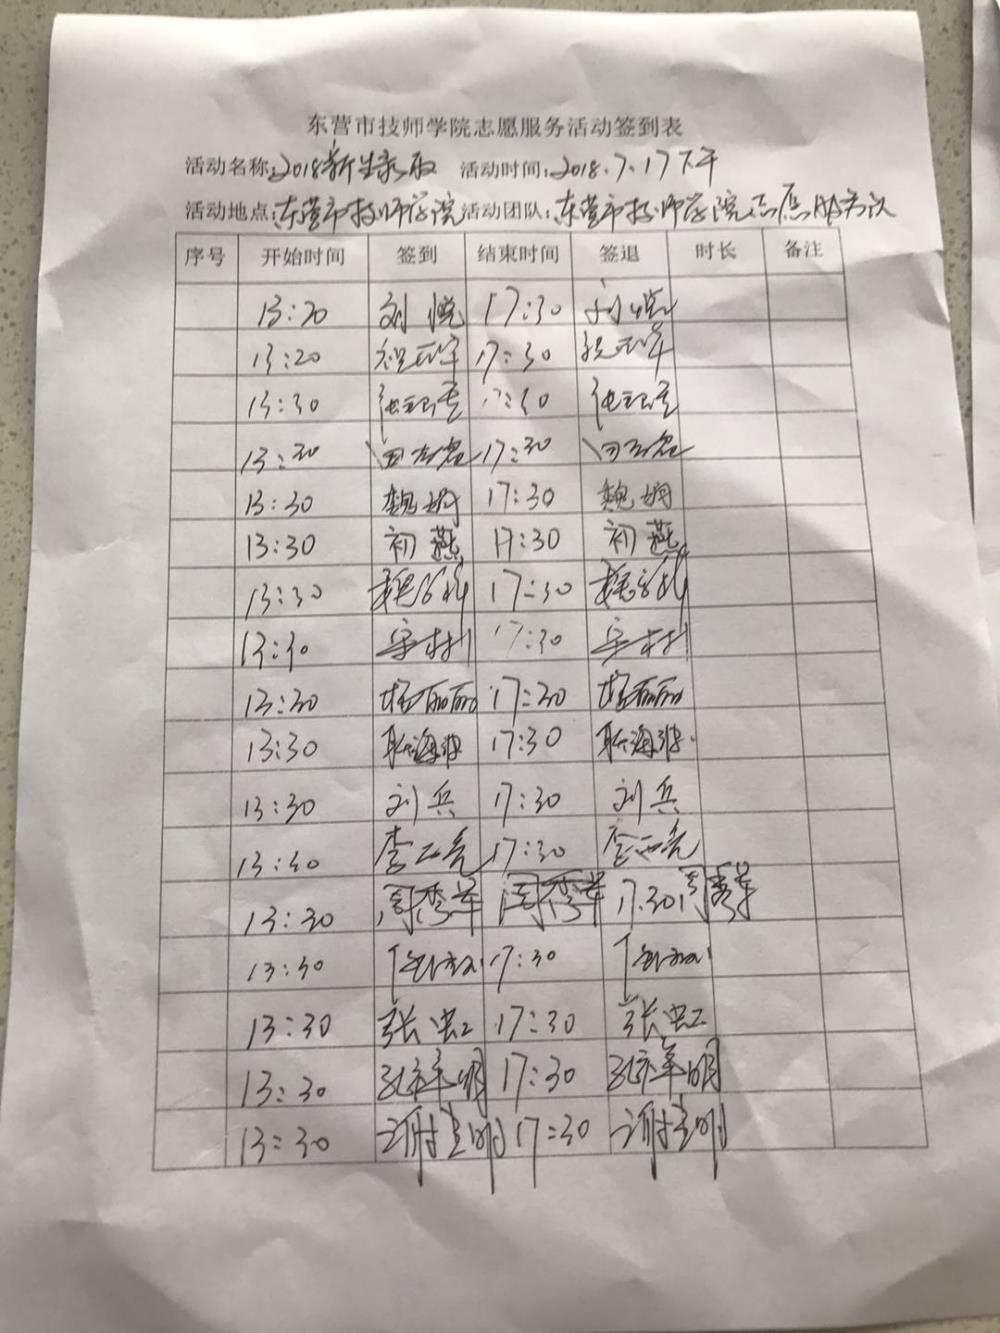 东营市技师学院志愿服务活动签到表
活动名称:2018新生录取 活动时间:2018.7.17下午
活动地点:东营市技师学院 活动团队:东营市技师学院志愿服务队
序号 开始时间 签到 结束时间 签退 时长 备注
13:20 刘悦 17:30 刘悦
13:20 17:30
13:30 17:30
13:30 17:30
13:30 魏娟 17:30 魏娟
13:30 初燕 17:30 初燕
13:30 17:30
13:30 17:30
13:30 杨丽丽 17:30 杨丽丽
13:30 17:30
13:30 刘兵 17:30 刘兵
13:30 17:30
13:30 周秀军 周秀军 17:30 周秀军
13:30 17:30
13:30 张虹 17:30 张虹
13:30 17:30
13:30 17:30